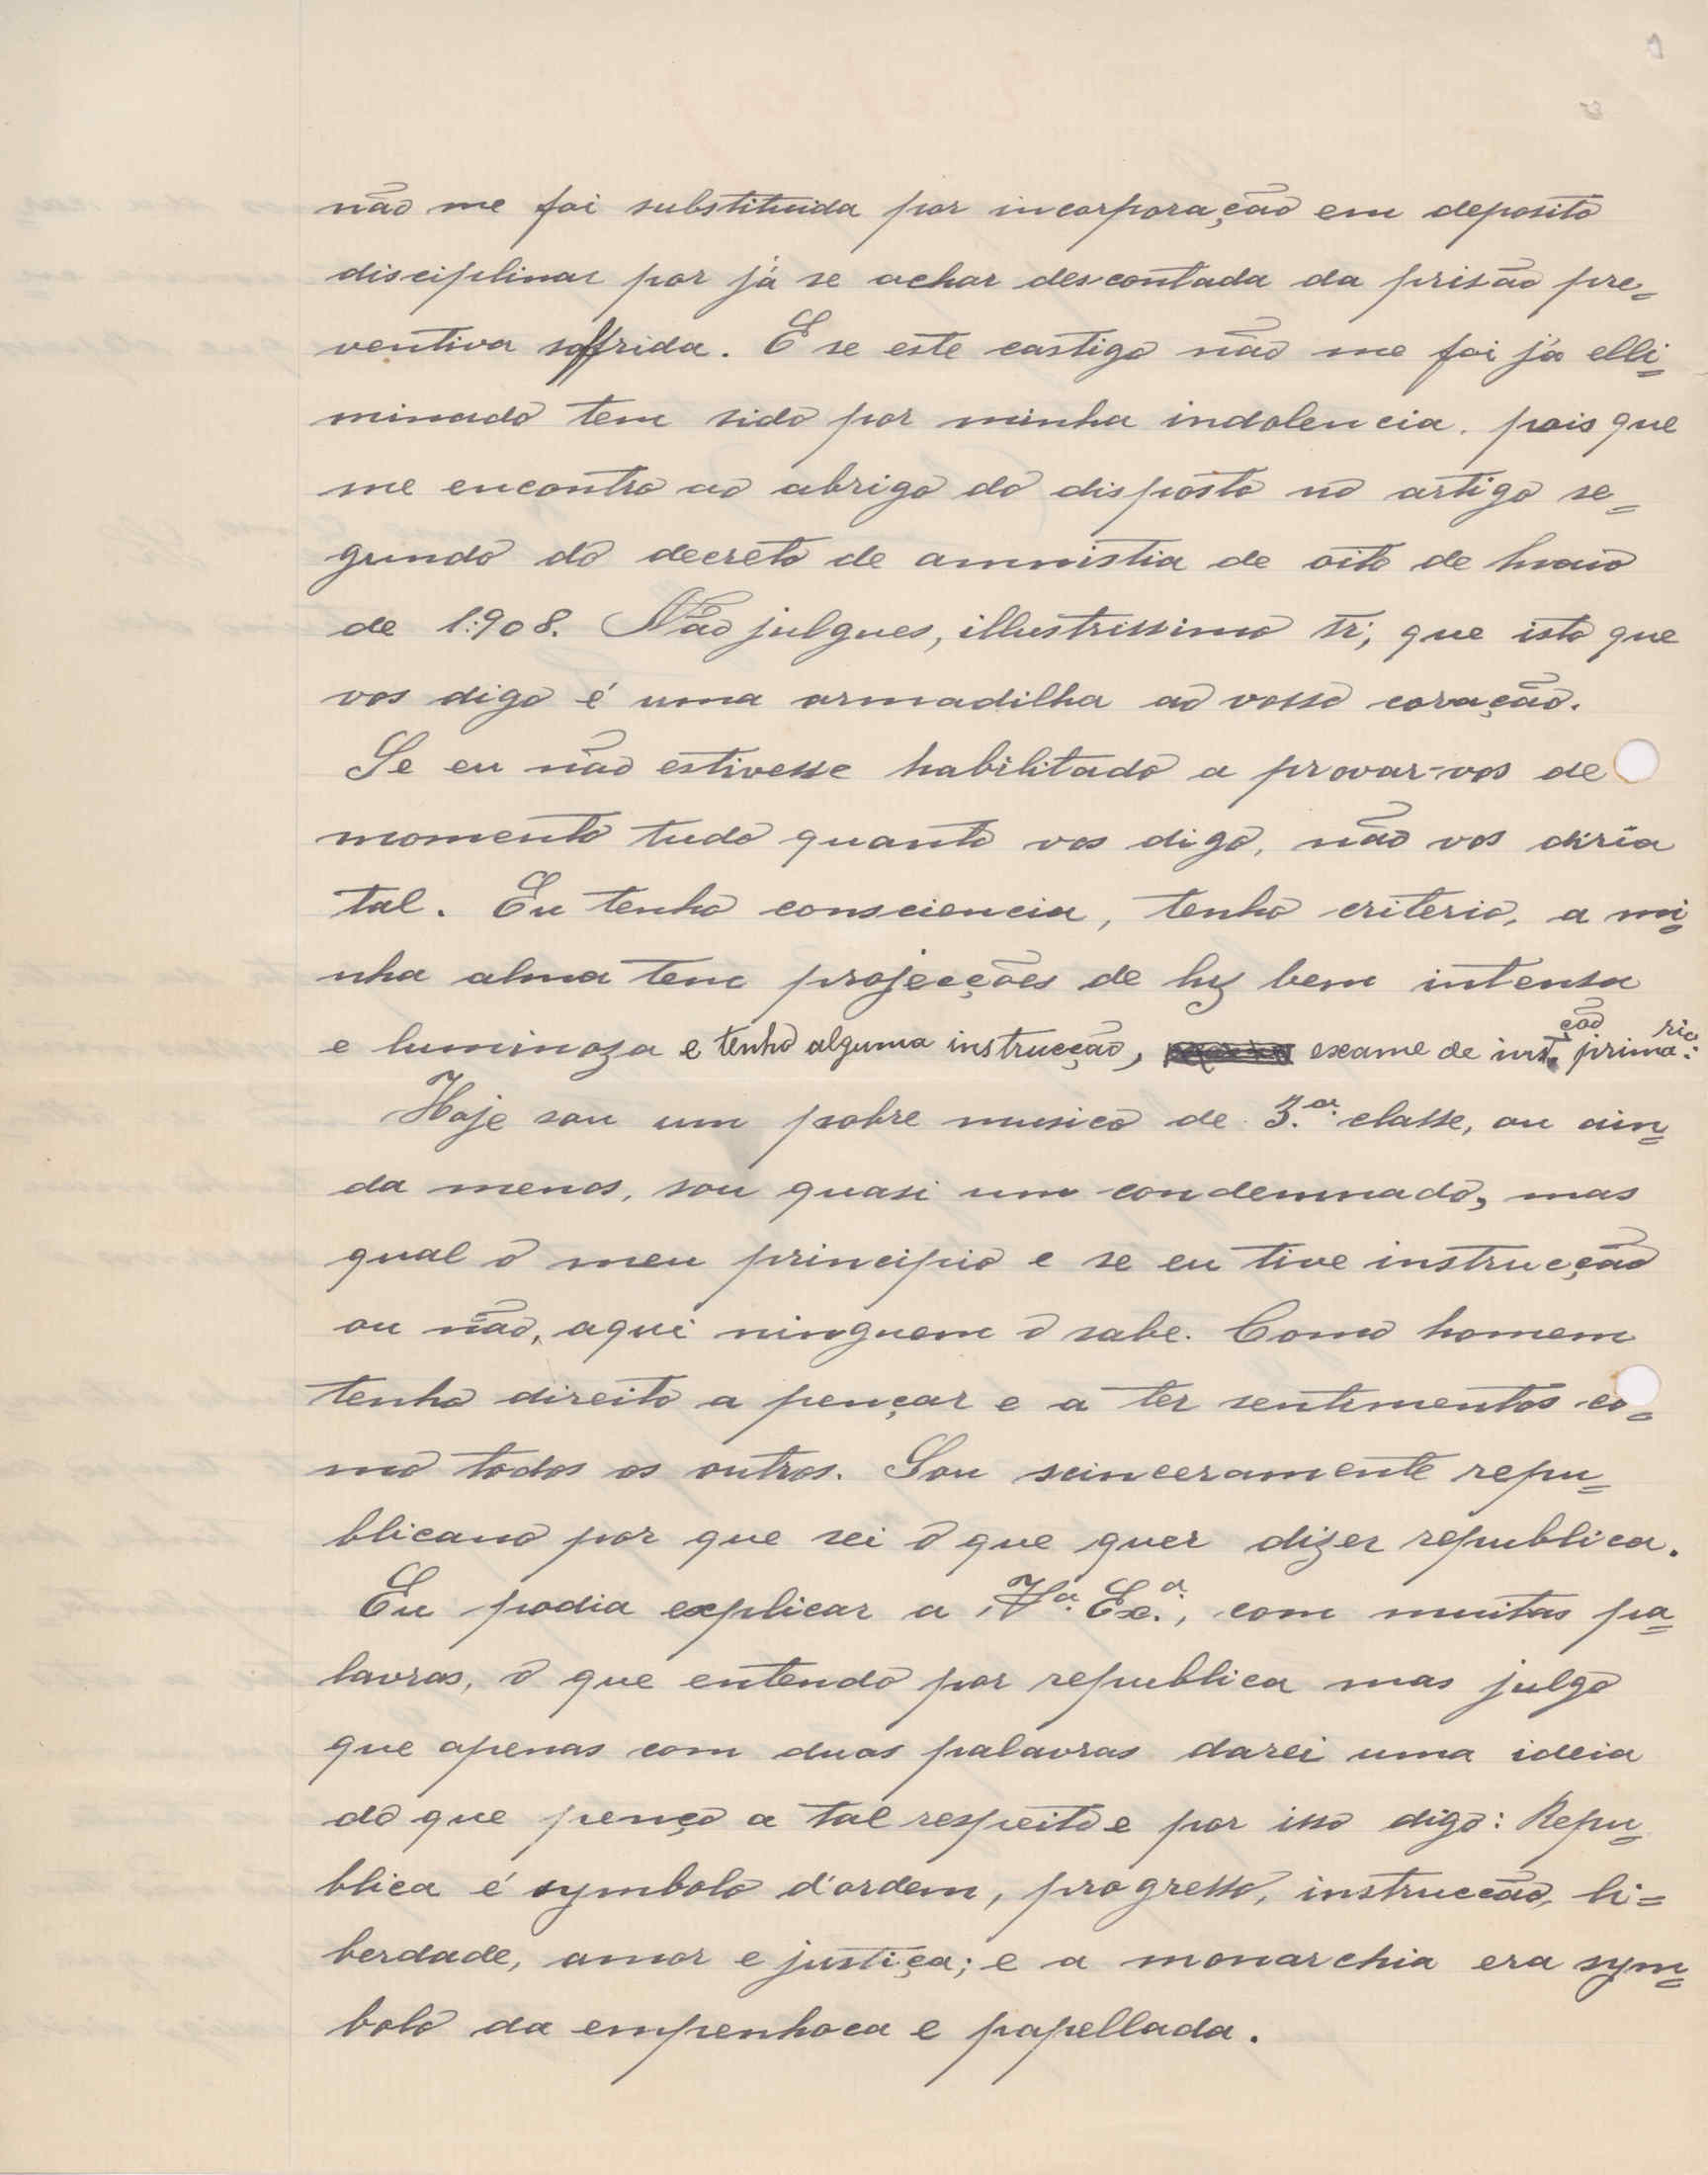 não me foi substituida por incorporação em deposito
disciplinar por já se achar descontada da prisão pre=
ventiva soffrida. E se este castigo não me foi já elli=
minado tem sido por minha indolencia, pois que
me encontro ao abrigo do disposto no artigo se=
gundo do decreto de amnistia de oito de maio
de 1:908. Não julgues, illustrissimo sr., que isto que
vos digo é uma armadilha ao vosso coração.
Se eu não estivesse habilitado a provar-vos de
momento tudo quanto vos digo, não vos diria
tal. Eu tenho consciencia, tenho criterio, a mi=
nha alma tem projecções de luz bem intensa
e luminoza e tenho alguma instrucção, exame de inst.ção primaria:
Hoje sou um pobre musico de 3.ª classe, ou ain=
da menos, sou quasi um condemnado, mas
qual o meu principio e se eu tive instrucção
ou não, aqui ninguem o sabe. Como homem
tenho direito a pençar e a ter sentimentos co=
mo todos os outros. Sou seinceramente repu=
blicano por que sei o que quer dizer republica.
Eu podia explicar a V.ª Ex.ª, com muitas pa=
lavras, o que entendo por republica mas julgo
que apenas com duas palavras darei uma ideia
do que penço a tal respeito e por isso digo: Repu=
blica é symbolo d'ordem, progresso, instrucção, li=
berdade, amor e justiça; e a monarchia era sym=
bolo da empenhoca e papellada.